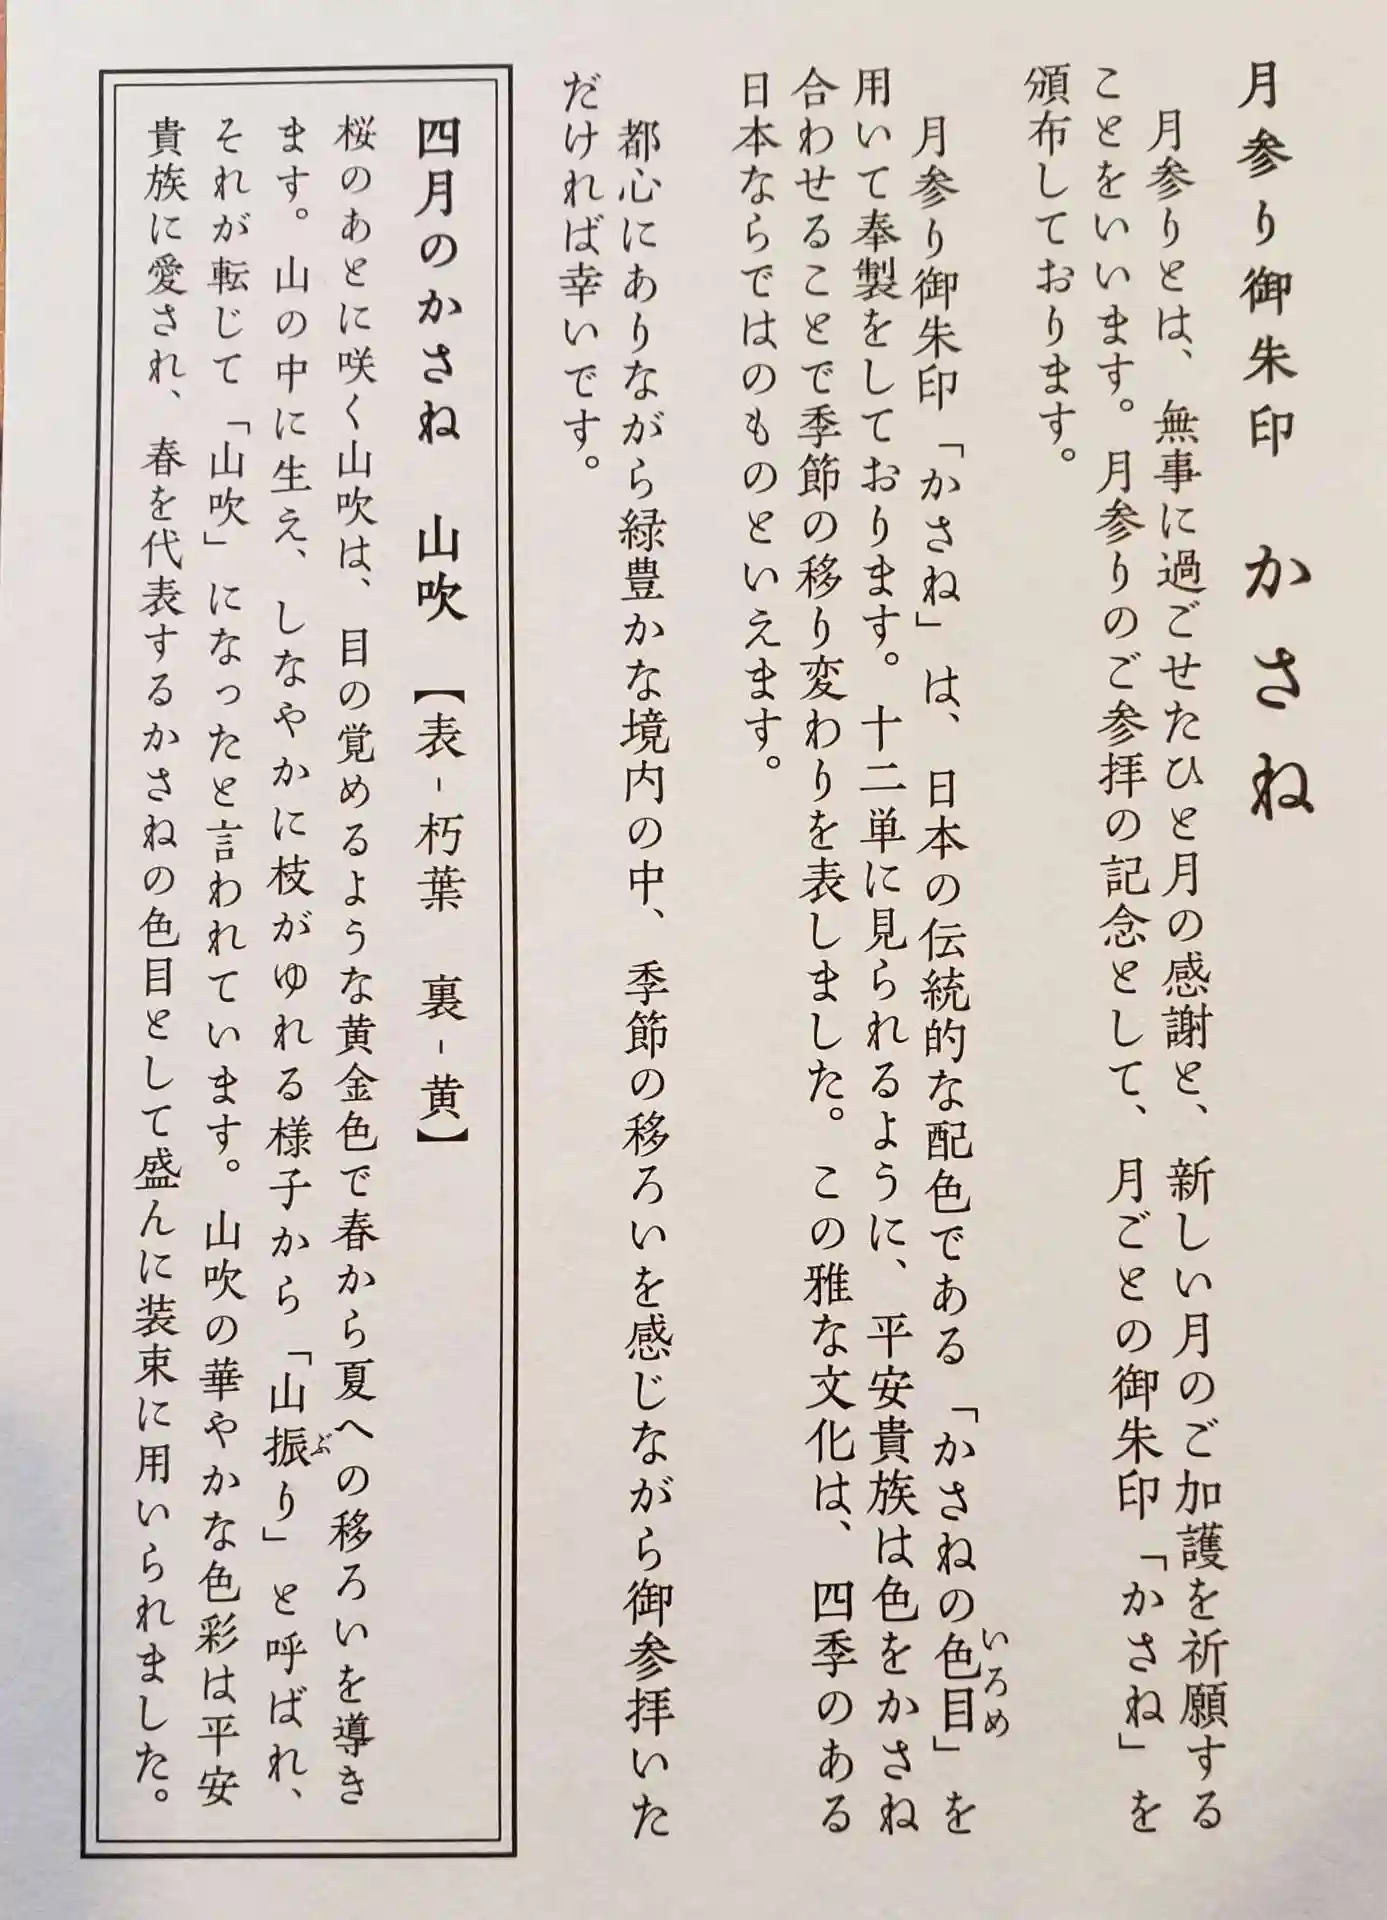 月参り御朱印　かさね
月参りとは、無事に過ごせたひと月の感謝と、新しい月のご加護を祈願する
ことをいいます。月参りのご参拝の記念として、月ごとの御朱印「かさね」を
頒布しております。
月参り御朱印「かさね」は、日本の伝統的な配色である「かさねの色目」を
いろめ
用いて奉製をしております。十二単に見られるように、平安貴族は色をかさね
合わせることで季節の移り変わりを表しました。この雅な文化は、四季のある
日本ならではのものといえます。
都心にありながら緑豊かな境内の中、季節の移ろいを感じながら御参拝いた
だければ幸いです。
四月のかさね　山吹　【表-朽葉　裏-黄】
桜のあとに咲く山吹は、目の覚めるような黄金色で春から夏への移ろいを導き
ます。山の中に生え、しなやかに枝がゆれる様子から「山振り」と呼ばれ、
ぶ
それが転じて「山吹」になったと言われています。山吹の華やかな色彩は平安
貴族に愛され、春を代表するかさねの色目として盛んに装束に用いられました。